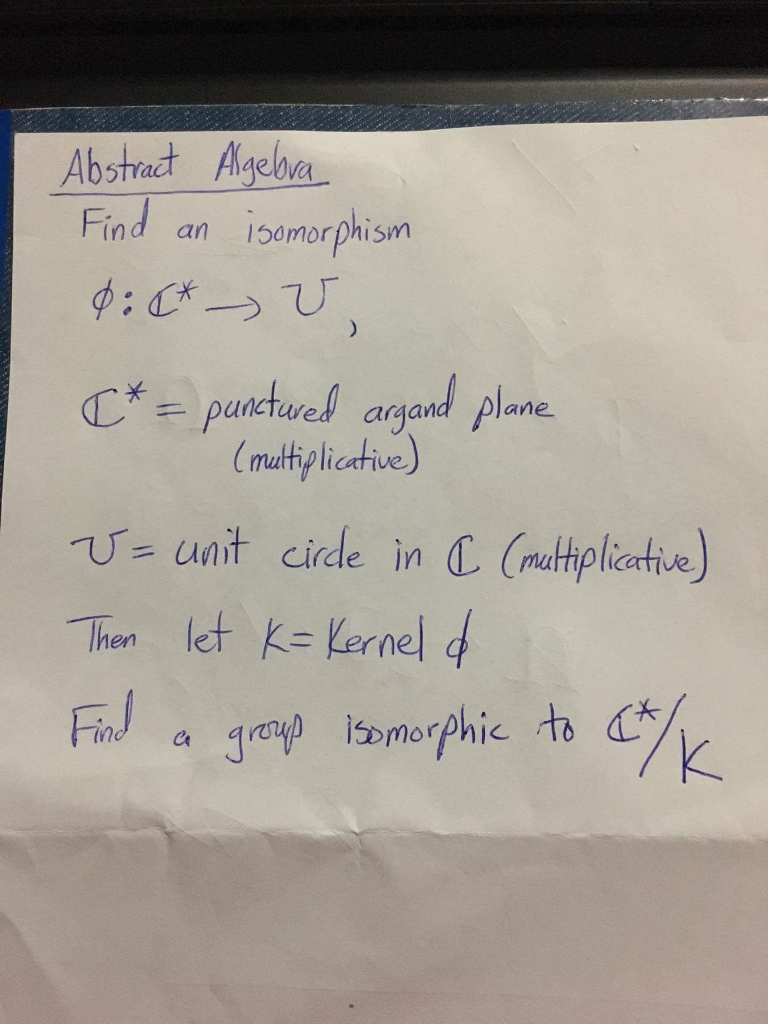 Abstract Algebra
Find an isomorphism
ϕ: ℂ* → U,
ℂ* = punctured argand plane
(multiplicative)
U = unit circle in ℂ (multiplicative)
Then let K = Kernel ϕ
Find a group isomorphic to ℂ*/K